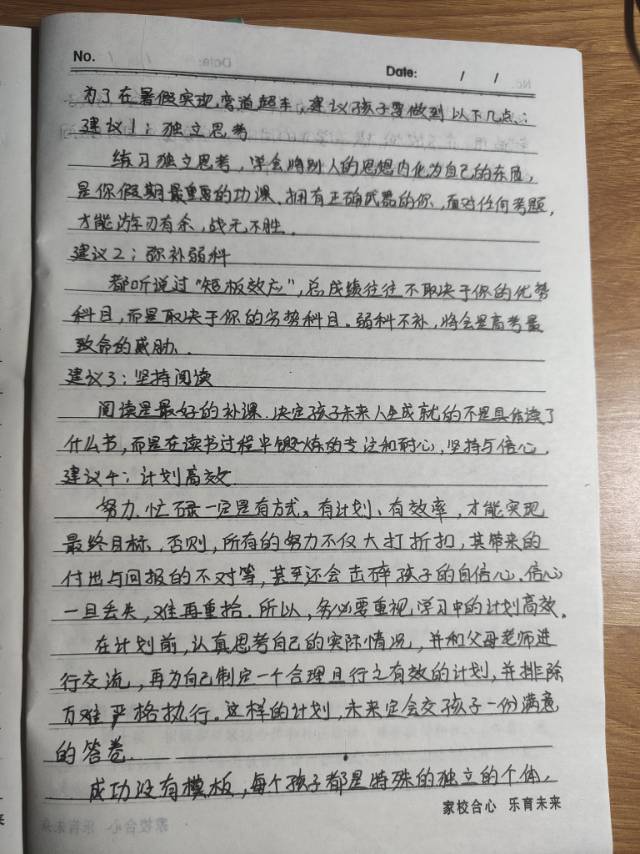 No.
Date: / /
为了在暑假实现弯道超车，建议孩子要做到以下几点：
建议1：独立思考
练习独立思考，学会将别人的思想内化为自己的东西，
是你假期最重要的功课。拥有正确武器的你，面对任何考题，
才能游刃有余，战无不胜。
建议2：弥补弱科
都听说过“短板效应”，总成绩往往不取决于你的优势
科目，而是取决于你的劣势科目。弱科不补，将会是高考最
致命的威胁。
建议3：坚持阅读
阅读是最好的补课。决定孩子未来人生成就的不是具体读了
什么书，而是在读书过程中锻炼的专注和耐心，坚持与信心。
建议4：计划高效
努力、忙碌一定是有方式、有计划、有效率，才能实现
最终目标，否则，所有的努力不仅大打折扣，其带来的
付出与回报的不对等，甚至还会击碎孩子的自信心。信心
一旦丢失，难再重拾。所以，务必要重视学习中的计划高效。
在计划前，认真思考自己的实际情况，并和父母老师进
行交流，再为自己制定一个合理且行之有效的计划，并排除
万难严格执行。这样的计划，未来定会交孩子一份满意
的答卷。
成功没有模板，每个孩子都是特殊的独立的个体，
家校合心 乐育未来